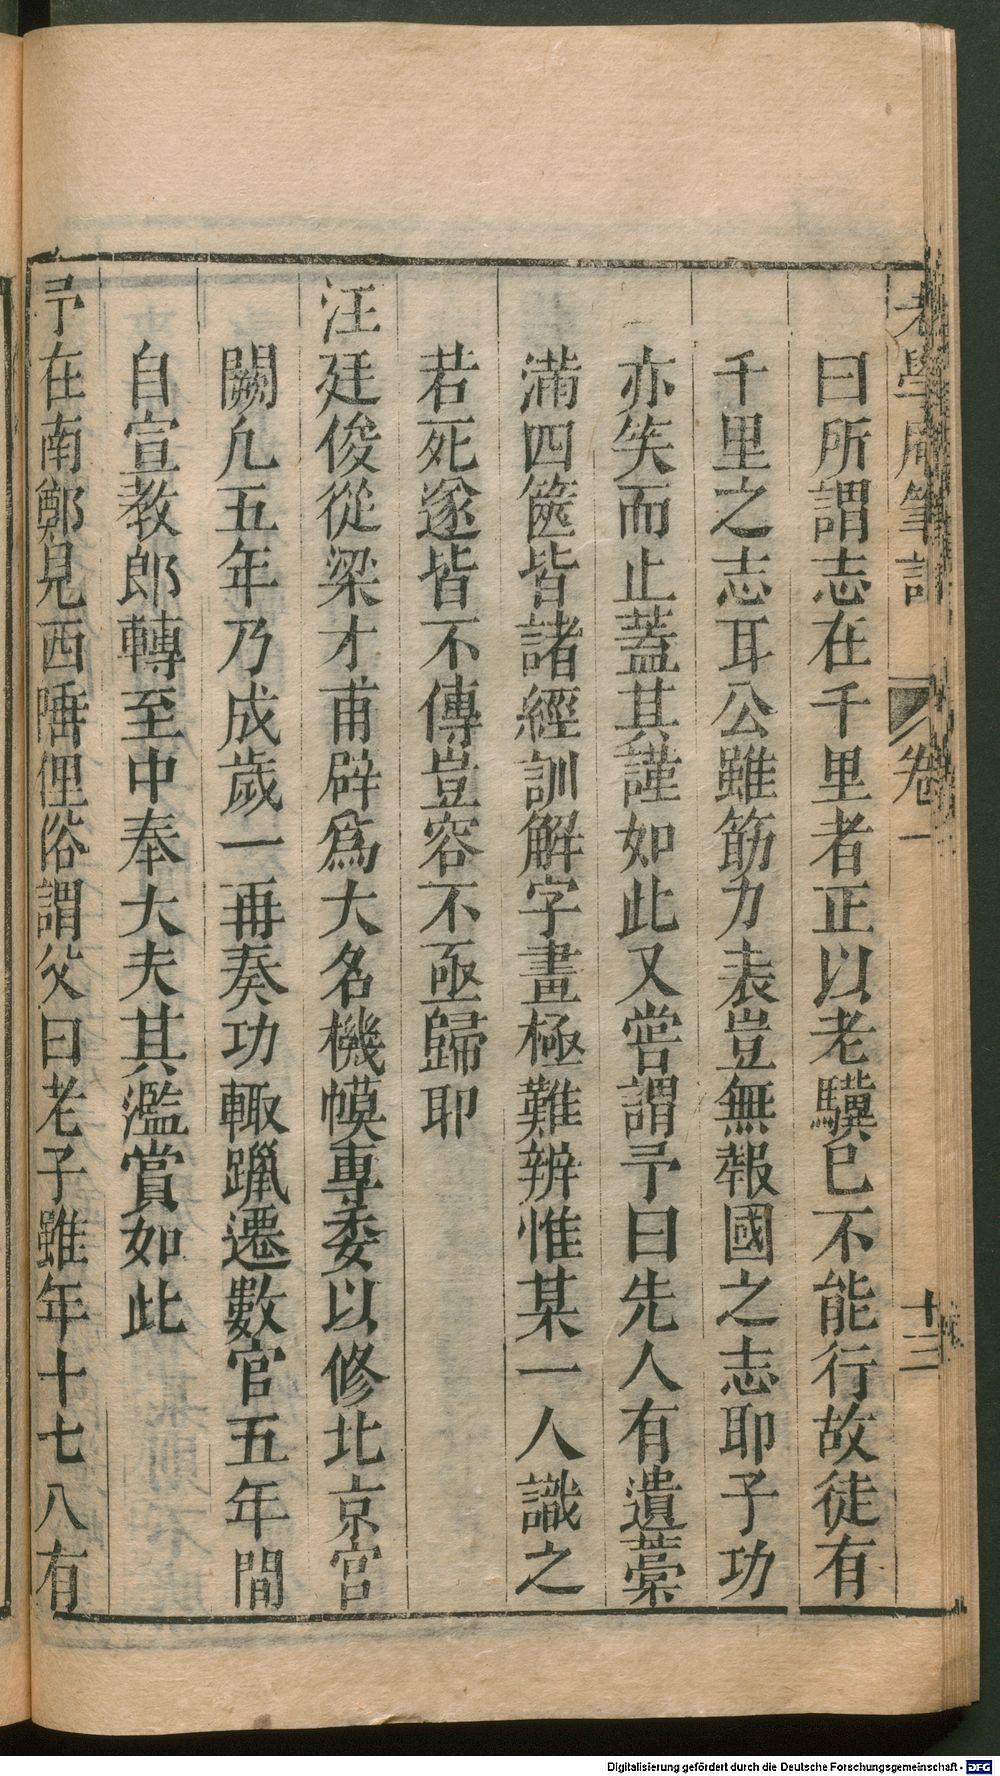 老學庵筆記 卷一 十三
曰所謂志在千里者正以老驥已不能行故徒有
千里之志耳公雖筋力衰豈無報國之志耶子功
亦笑而止蓋其謹如此又嘗謂予曰先人有遺藁
滿四篋皆諸經訓解字畫極難辨惟某一人識之
若死遂皆不傳豈容不亟歸耶
汪廷俊從梁才甫辟爲大名機幙專委以修北京宮
闕凢五年乃成歲一再奏功輙躐遷數官五年間
自宣教郎轉至中奉大夫其濫賞如此
予在南鄭見西陲俚俗謂父曰老子雖年十七八有
Digitalisierung gefördert durch die Deutsche Forschungsgemeinschaft - DFG